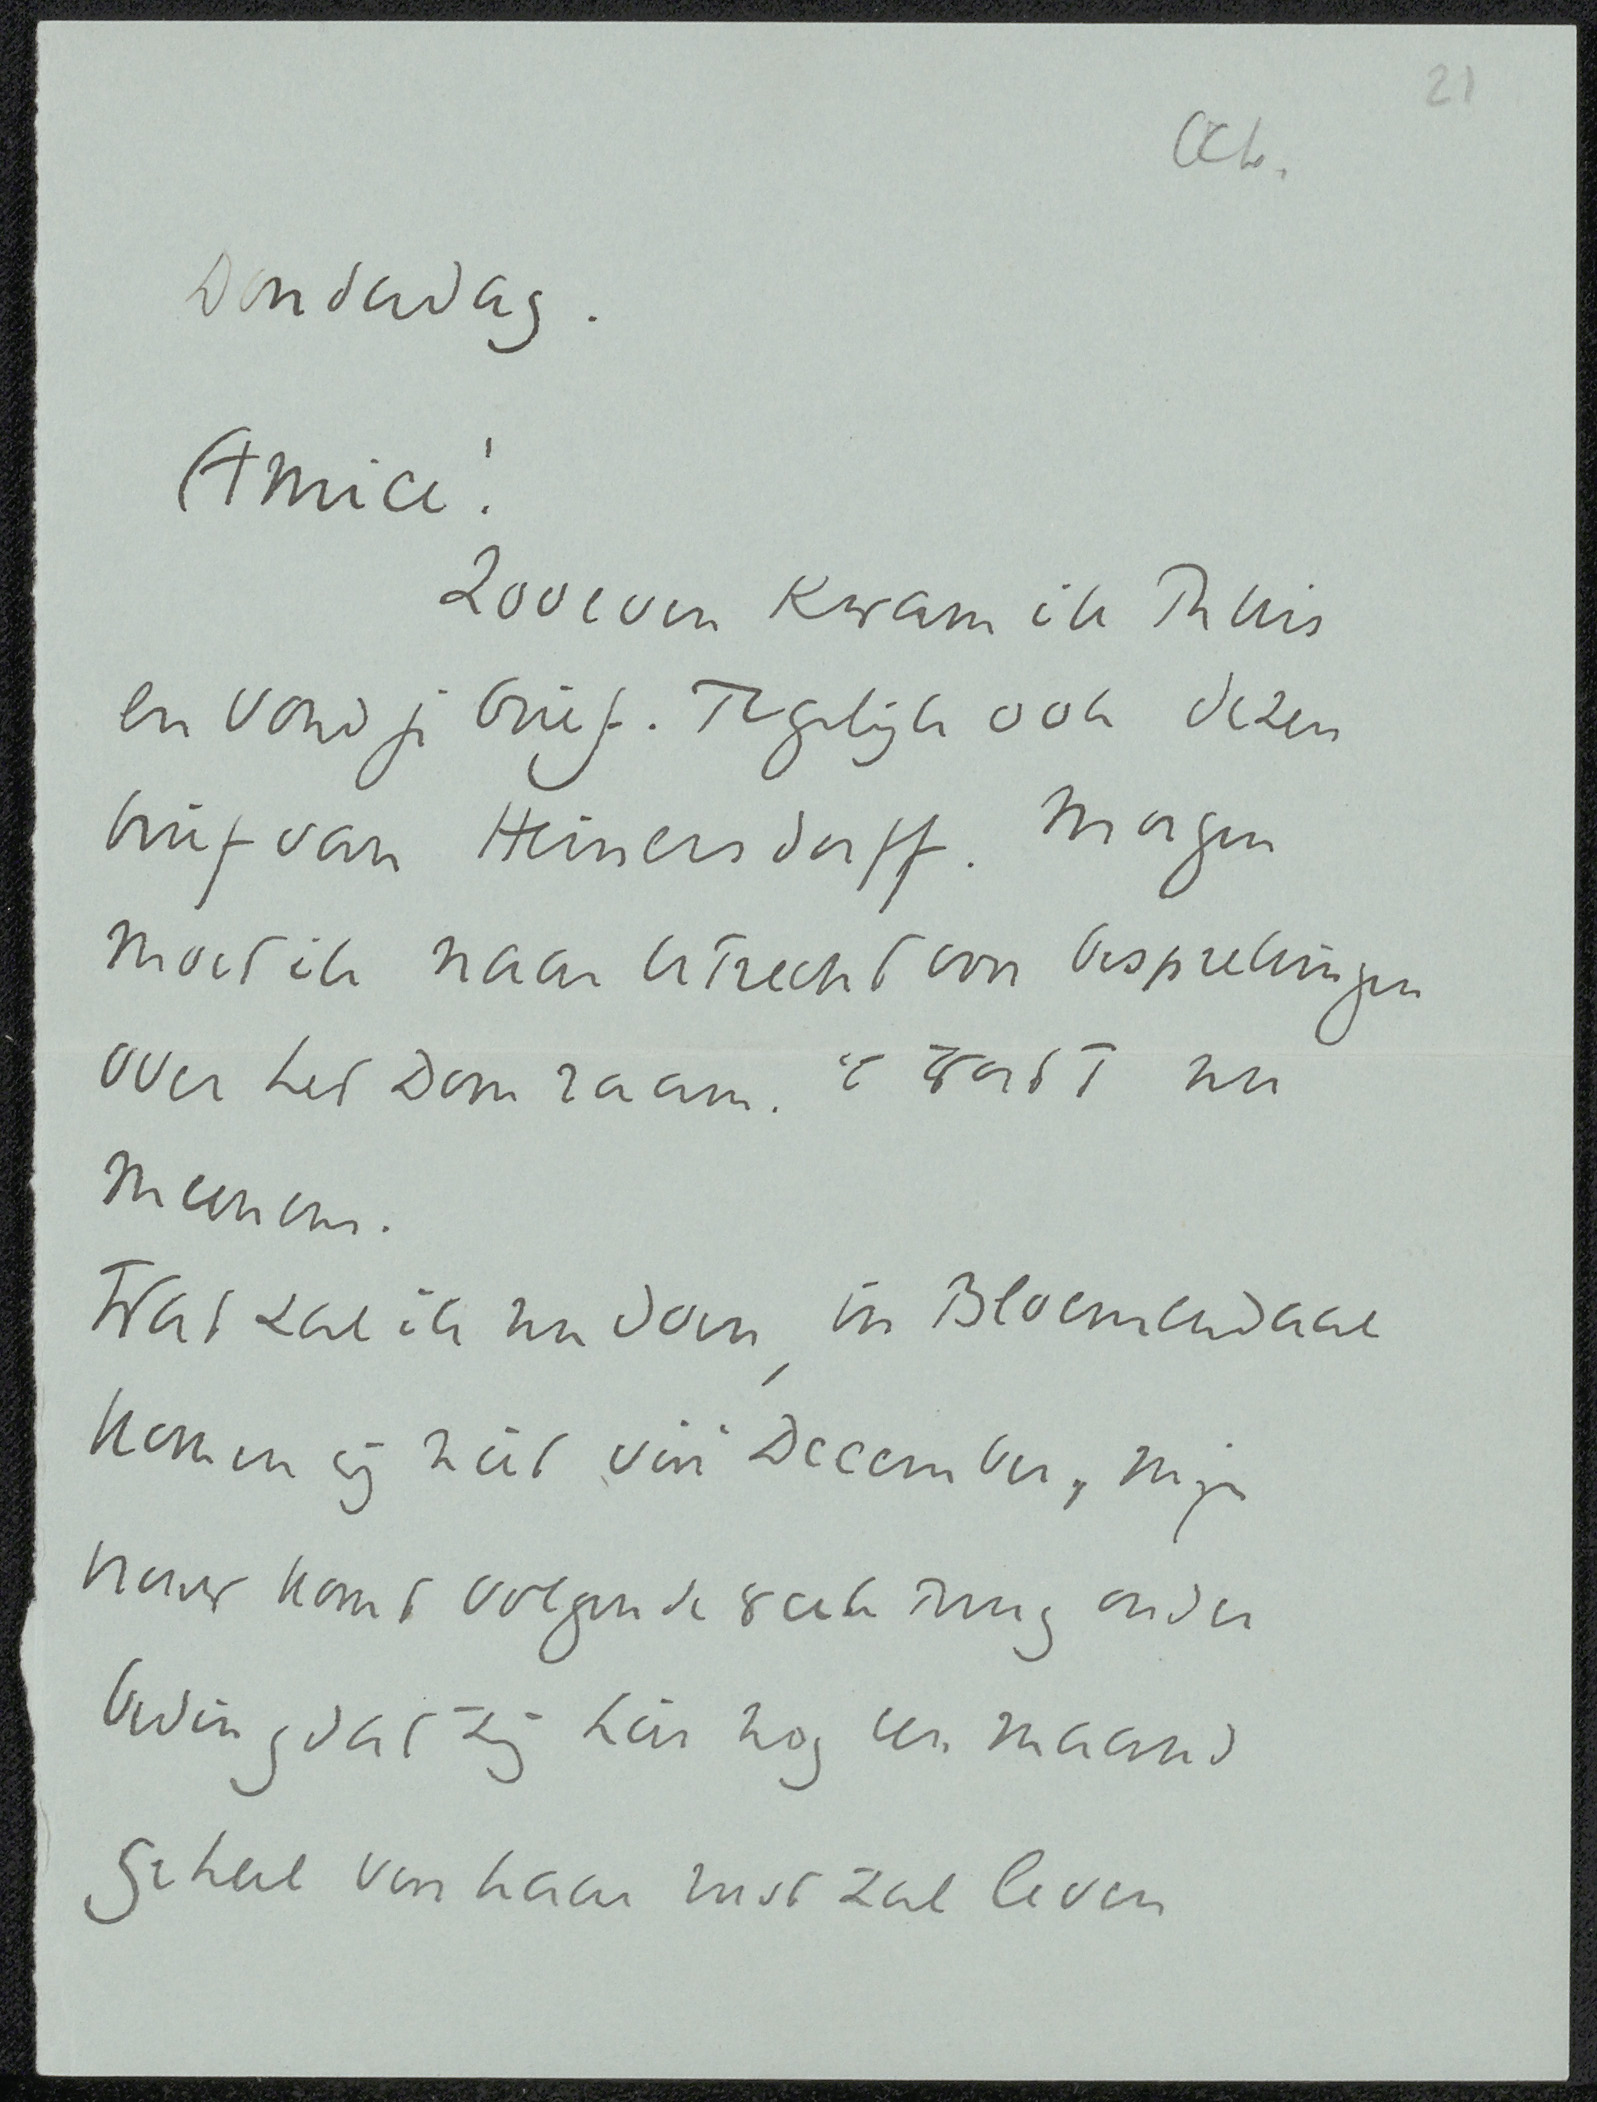 21
Oct.
Donderdag.
Amice!
Zooeven kwam ik thuis
en vond je brief. Tegelijk ook dezen
brief van Heinersdorff. Morgen
moet ik naar Utrecht voor besprekingen
over het Domraam. 't Wordt nu
meenens.
Wat zal ik nu doen, in Bloemendaal
komen wij niet vóór December, mijn
vrouw komt volgende week terug onder
beding dat zij hier nog een maand
geheel van haar rust zal leven